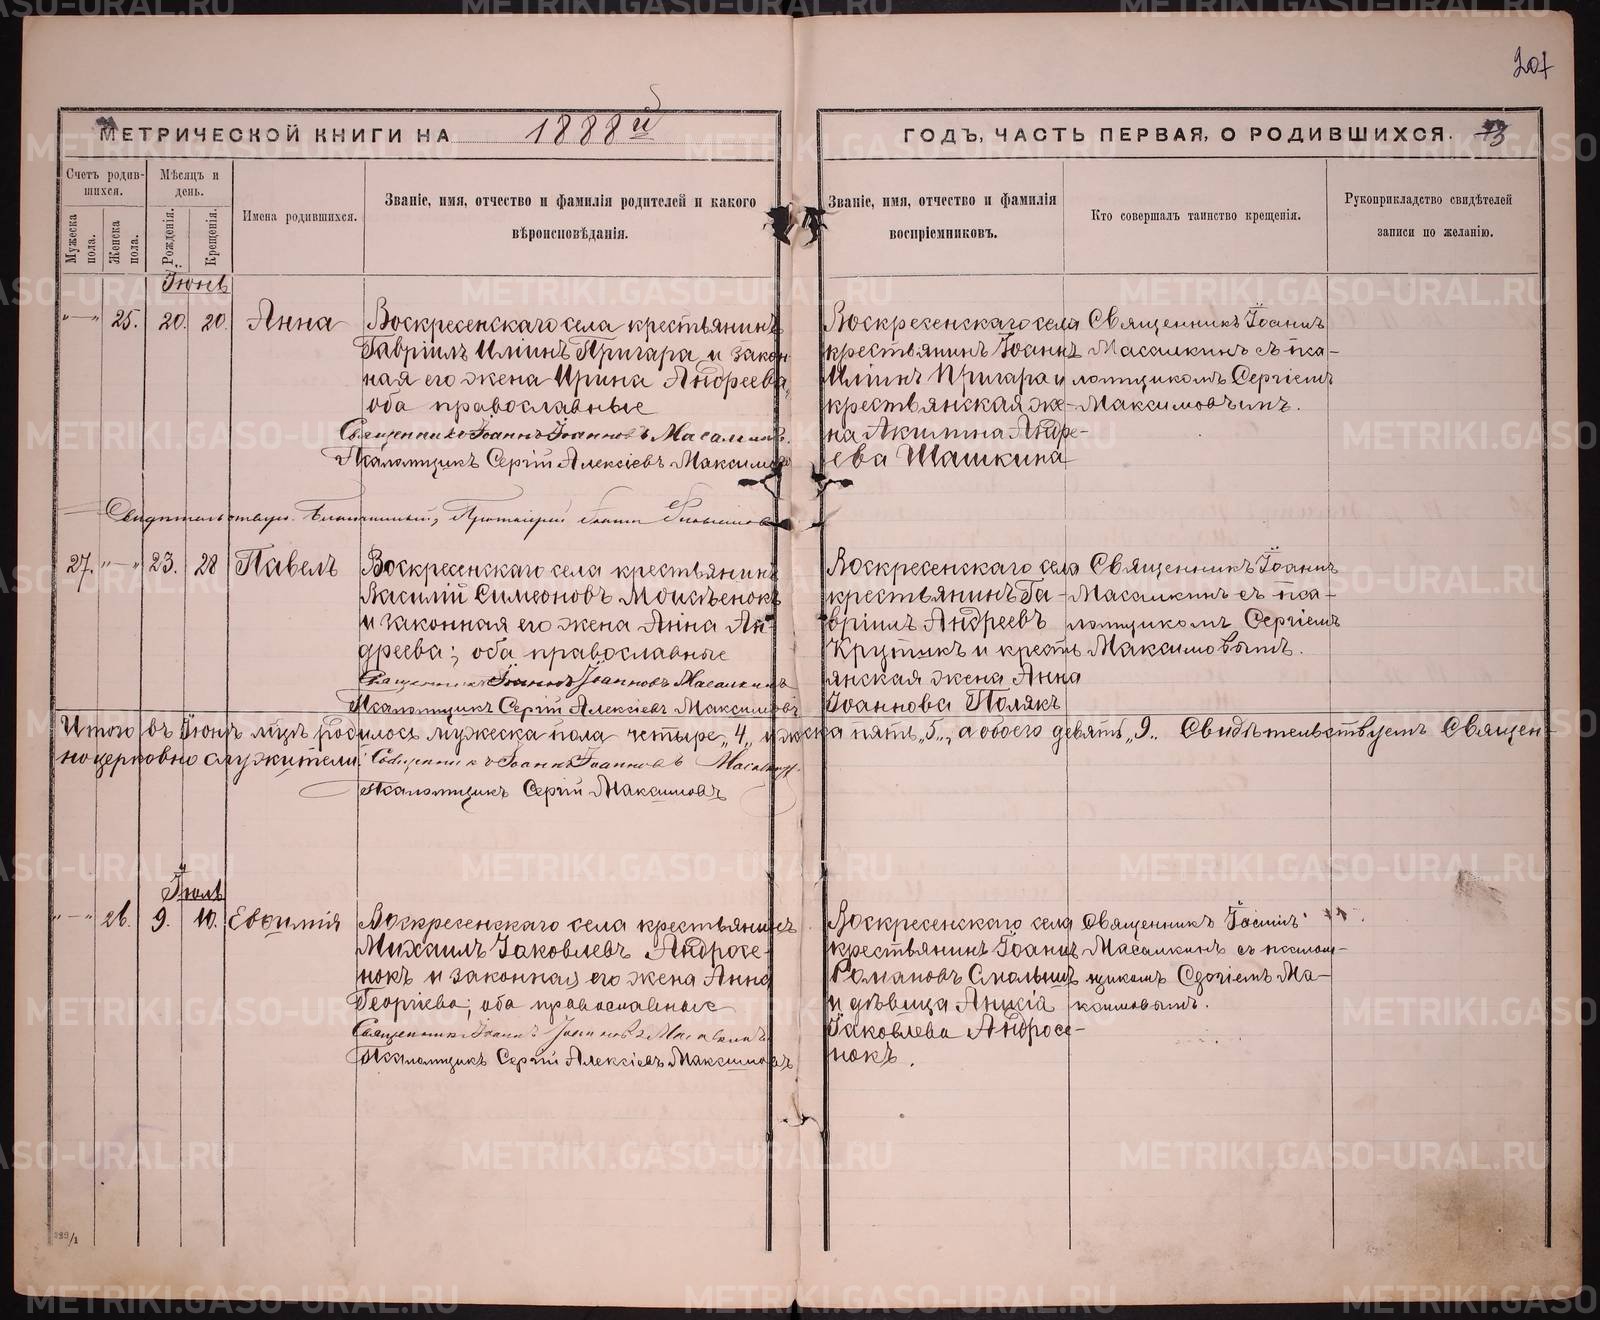 201
МЕТРИЧЕСКОЙ КНИГИ НА 1888й
ГОДЪ, ЧАСТЬ ПЕРВАЯ, О РОДИВШИХСЯ. 73
Счетъ родив-
шихся.
Мужеска пола.
Женска пола.
Мѣсяцъ и
день.
Рожденія.
Крещенія.
Имена родившихся.
Званіе, имя, отчество и фамилія родителей и какого
вѣроисповѣданія.
Званіе, имя, отчество и фамилія
воспріемниковъ.
Кто совершалъ таинство крещенія.
Рукоприкладство свидѣтелей
записи по желанію.
Іюнь
"—" 25. 20. 20. Анна
Воскресенскаго села крестьянинъ
Гавріилъ Иліинъ Пригара и закон-
ная его жена Ирина Андреева,
оба православные
Священникъ Іоаннъ Іоанновъ Масалкинъ.
Псаломщикъ Сергій Алексіевъ Максимовъ
Воскресенскаго села
крестьянинъ Іоаннъ
Иліинъ Пригара и
крестьянская же-
на Акилина Андре-
ева Шашкина
Священникъ Іоаннъ
Масалкинъ съ пса-
ломщикомъ Сергіемъ
Максимовымъ.
Свидѣтельствую. Благочинный, Протоіерей
27. "—" 23. 28 Павелъ
Воскресенскаго села крестьянинъ
Василій Симеоновъ Моисѣенокъ
и законная его жена Анна Ан-
дреева; оба православные
Священникъ Іоаннъ Іоанновъ Масалкинъ
Псаломщикъ Сергій Алексіевъ Максимовъ
Воскресенскаго села
крестьянинъ Га-
вріилъ Андреевъ
Крутикъ и кресть
янская жена Анна
Іоаннова Полякъ
Священникъ Іоаннъ
Масалкинъ съ пса-
ломщикомъ Сергіемъ
Максимовымъ.
Итого въ Іюнѣ мцѣ родилось мужеска пола четыре „4„ женска пять „5„, а обоего девять „9„ Свидѣтельствуемъ Священ-
ноцерковно служители: Священникъ Іоаннъ Іоанновъ Масалкинъ.
Псаломщикъ Сергій Максимовъ
Іюль
"—" 26. 9. 10. Евѳимія
Воскресенскаго села крестьянинъ
Михаилъ Іаковлевъ Андросе-
нокъ и законная его жена Анна
Георгіева; оба православные
Священникъ Іоаннъ Іоанновъ Масалкинъ
Псаломщикъ Сергій Алексіевъ Максимовъ
Воскресенскаго села
крестьянинъ Іоаннъ
Романовъ Смольниъ
и дѣвица Аникія
Іаковлева Андросе-
нокъ.
Священникъ Іоаннъ
Масалкинъ съ псалом-
щикомъ Сергіемъ Ма-
ксимовымъ.
METRIKI.GASO-URAL.RU